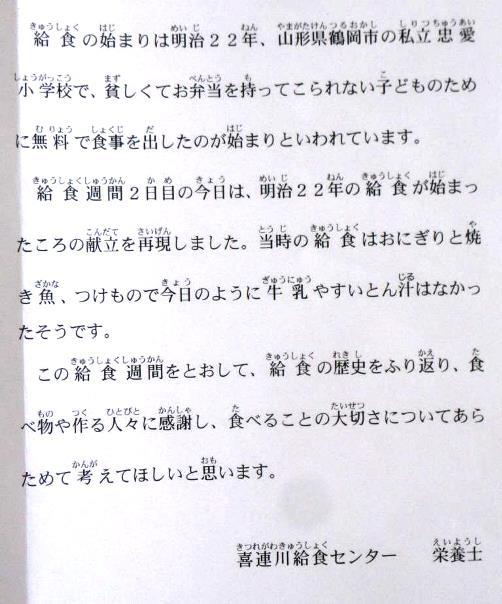 給食の始まりは明治２２年、山形県鶴岡市の私立忠愛
小学校で、貧しくてお弁当を持ってこられない子どものため
に無料で食事を出したのが始まりといわれています。
給食週間２日目の今日は、明治２２年の給食が始まっ
たころの献立を再現しました。当時の給食はおにぎりと焼
き魚、つけもので今日のように牛乳やすいとん汁はなかっ
たそうです。
この給食週間をとおして、給食の歴史をふり返り、食
べ物や作る人々に感謝し、食べることの大切さについてあら
ためて考えてほしいと思います。
喜連川給食センター　栄養士